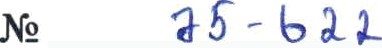 № 75-622